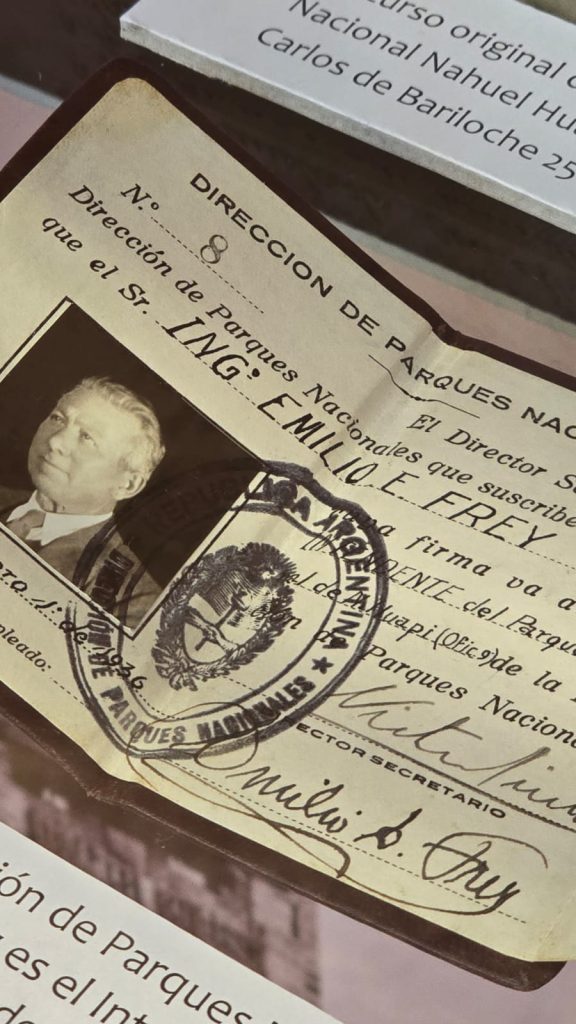 curso original d
Nacional Nahuel Hu
Carlos de Bariloche 25
DIRECCION DE PARQUES NAC
N.º 8
El Director S
Dirección de Parques Nacionales que suscribe
que el Sr. ING: EMILIO E. FREY
firma va a
DENTE del Parqu
uapi (Ofic 9) de la
Parques Naciona
1º de 1936
pleado:
REPUBLICA ARGENTINA ★
DE PARQUES NACIONALES
ECTOR SECRETARIO
Emilio E. Frey
ión de Parques
es el Int